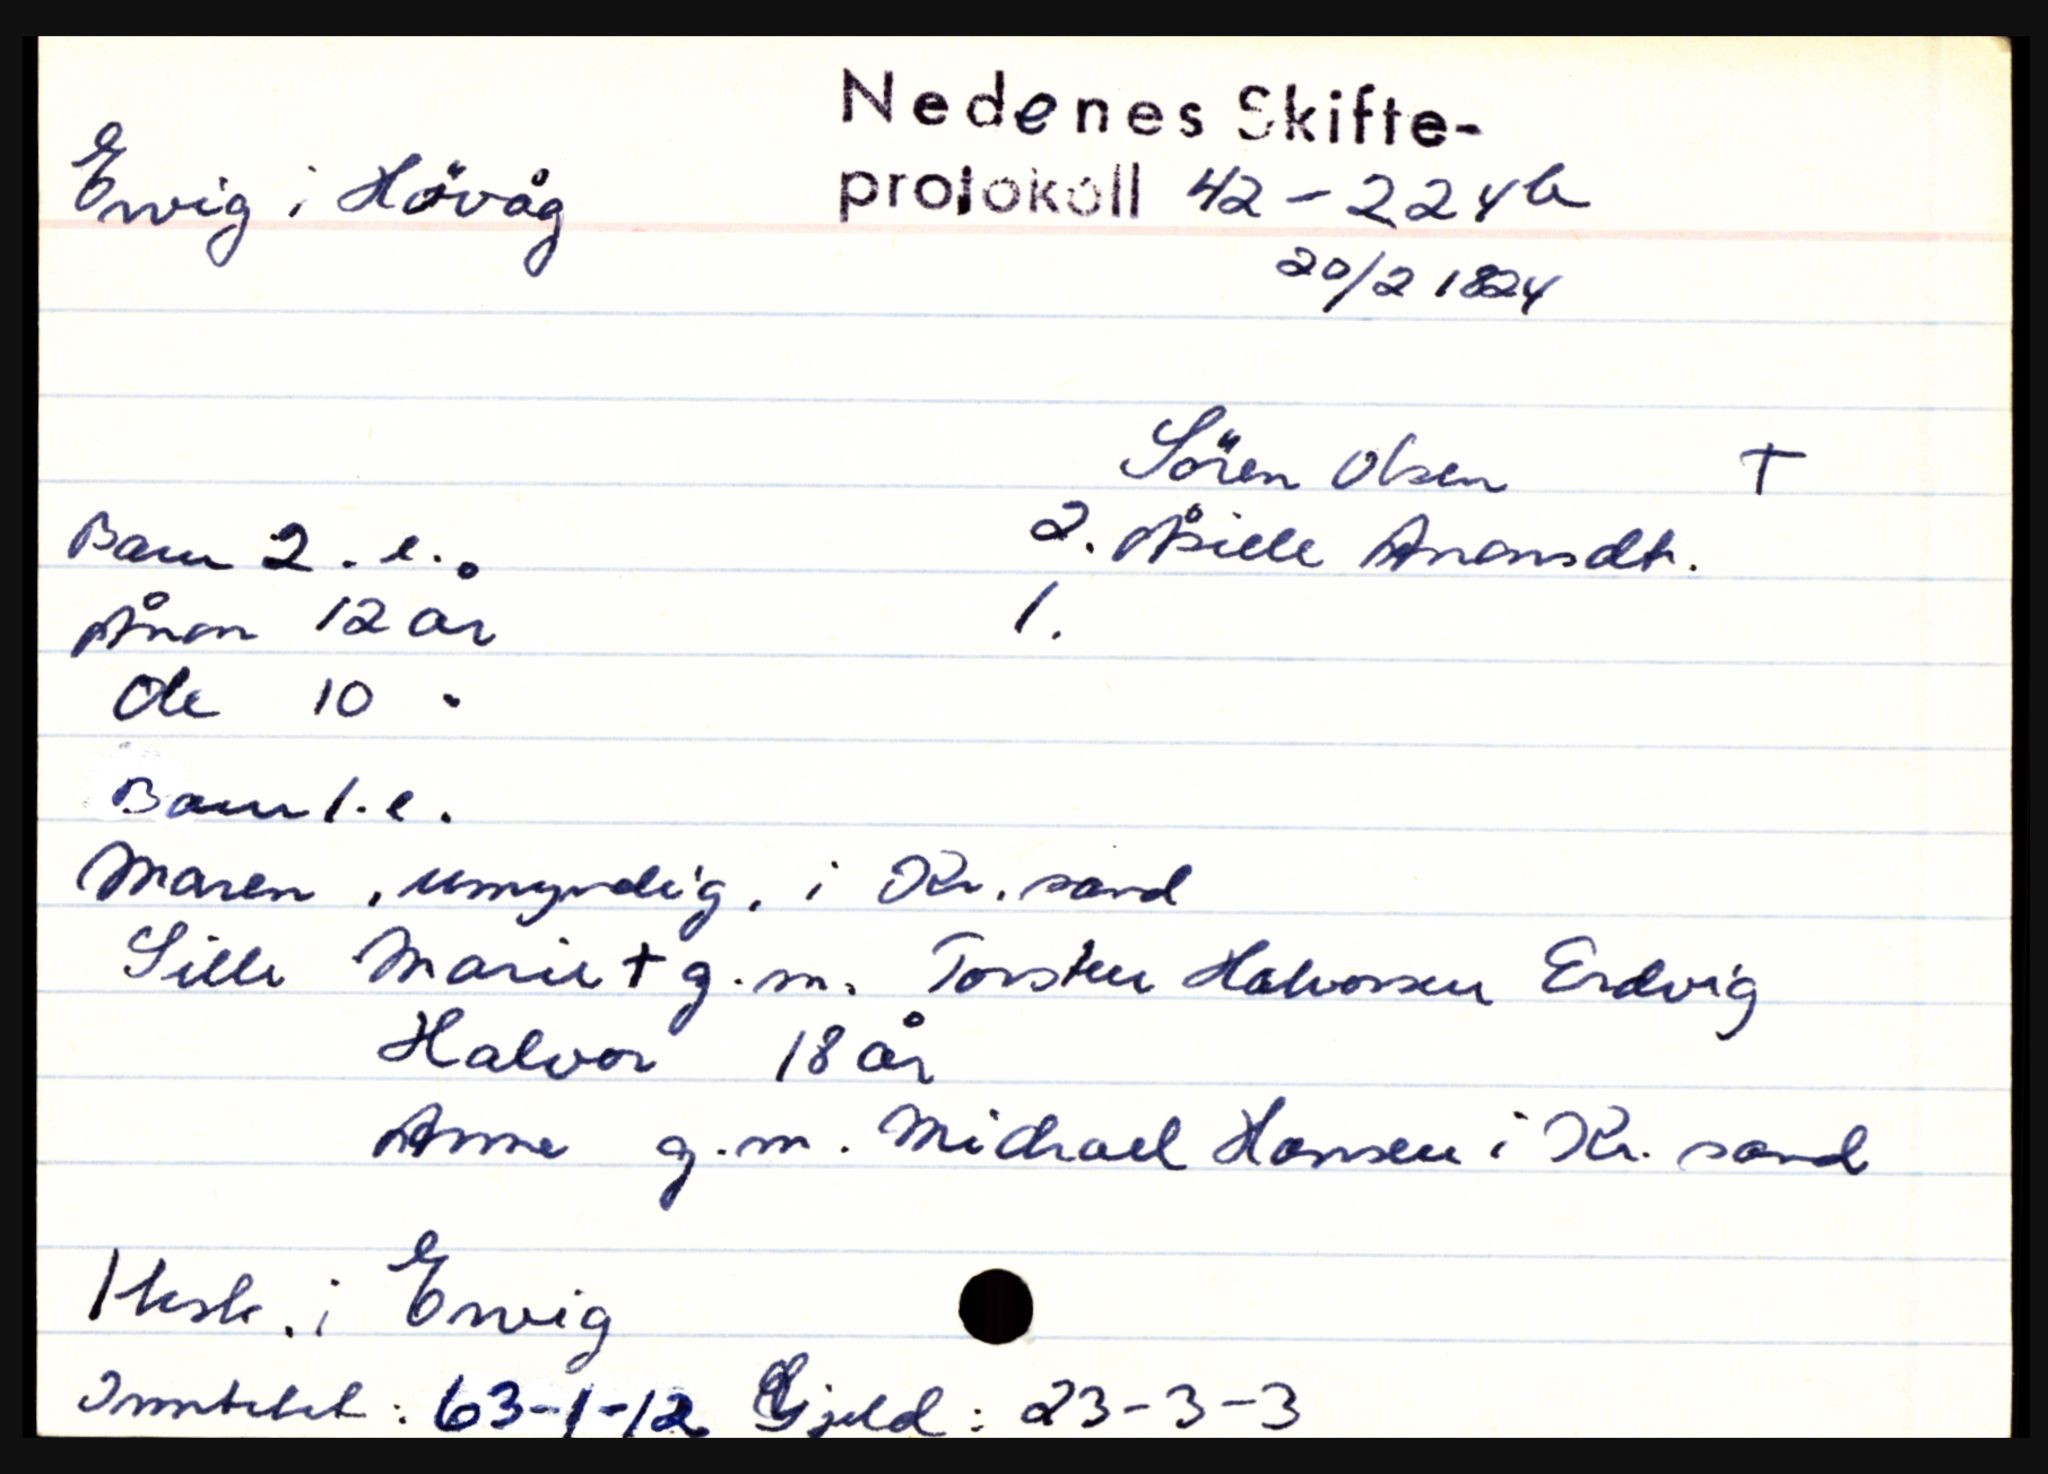 Nedenes Skifte-
Ervig i Hövåg protokoll 42-224b
20/2 1824
Sören Olsen †
Barn 2. e. 2. Åsille Anonsdtr.
Ånon 12 år 1.
Ole 10 "
Barn 1. e.
Maren, umyndig, i Kr. sand
Sille Marie † g. m. Torsten Halvorsen Erdvig
Halvor 18 år
Anne g. m. Michael Hansen i Kr. sand
1 Hesk. i Ervig
Inntekt: 63-1-12 Gjeld: 23-3-3